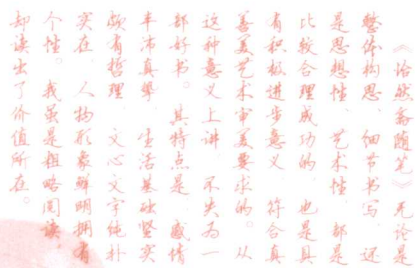 《怡然斋随笔》无论是
整体构思 细节书写 还
是思想性 艺术性 都是
比较合理成功的 也是具
有积极进步意义 符合真
善美艺术审美要求的。从
这种意义上讲 不失为一
部好书。其特点是 感情
丰沛真挚 生活基础坚实
颇有哲理 文心文字纯朴
实在 人物形象鲜明拥有
个性。我虽是粗略阅读,
却读出了价值所在。